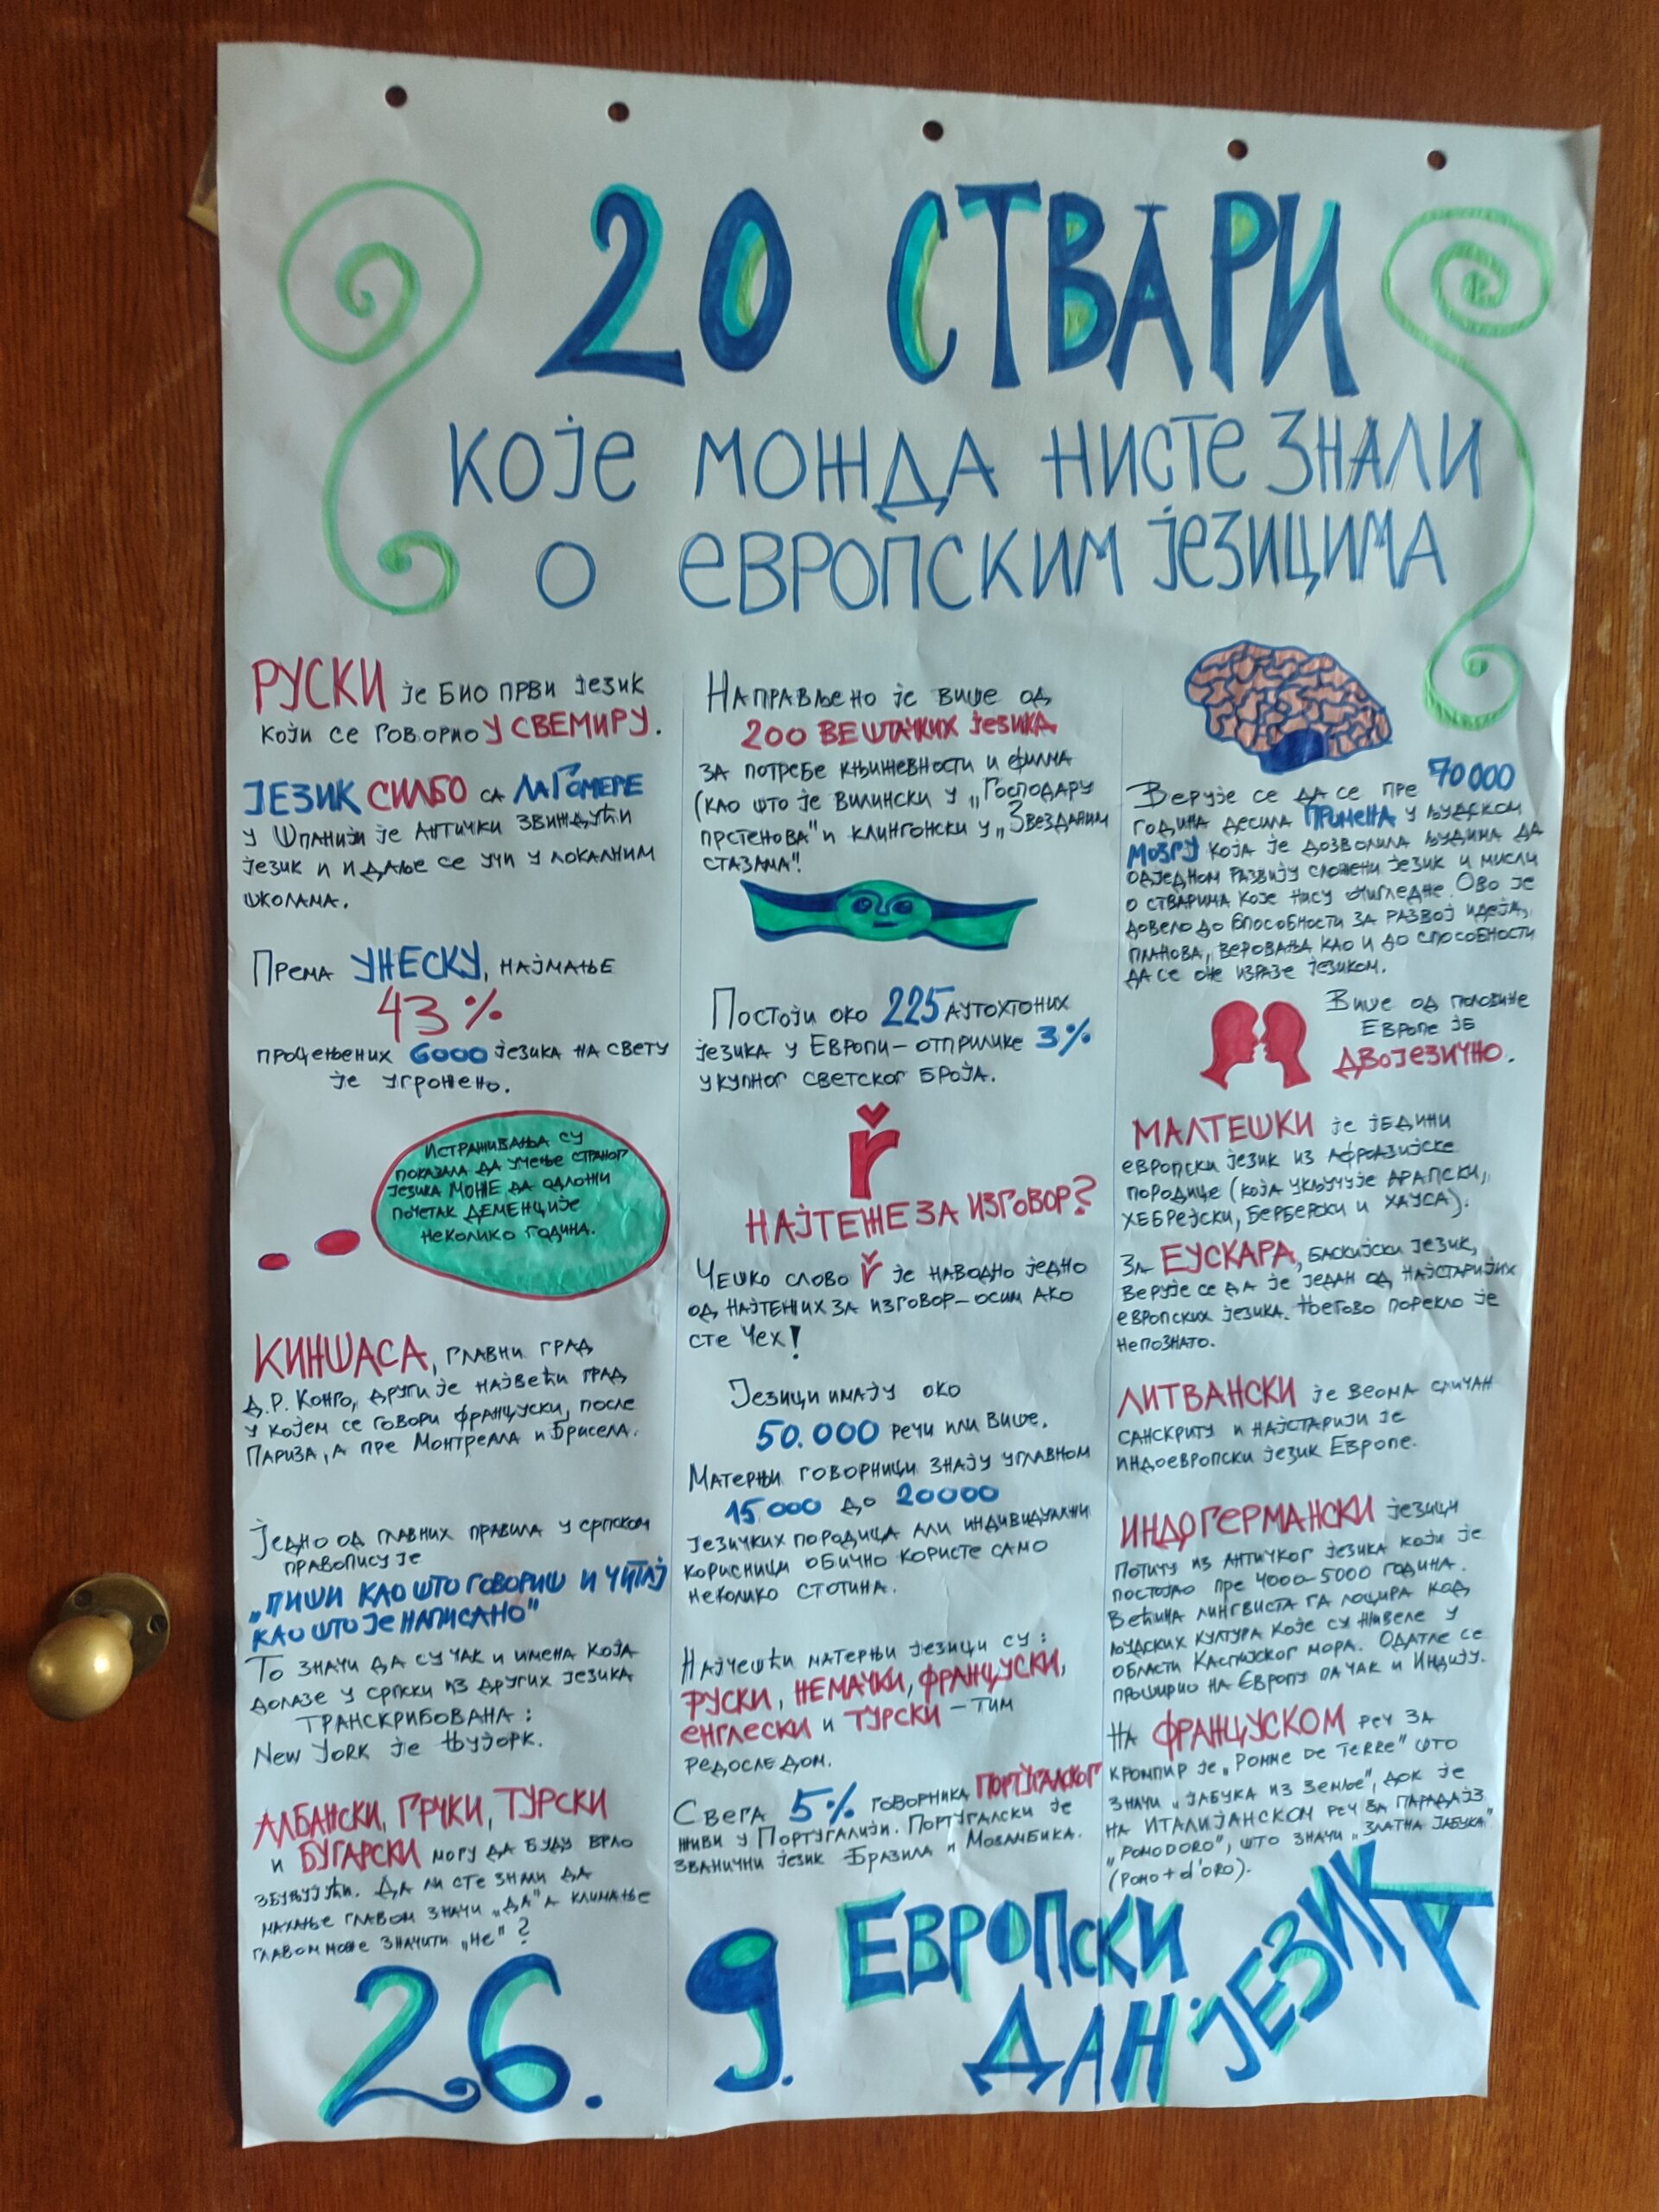 20 СТВАРИ
КОЈЕ МОЖДА НИСТЕ ЗНАЛИ
О ЕВРОПСКИМ ЈЕЗИЦИМА
РУСКИ ЈЕ БИО ПРВИ ЈЕЗИК
КОЈИ СЕ ГОВОРИО У СВЕМИРУ.
ЈЕЗИК СИЛБО СА ЛА ГОМЕРЕ
У ШПАНИЈИ ЈЕ АНТИЧКИ ЗВИЖДУЋИ
ЈЕЗИК И И ДАЉЕ СЕ УЧИ У ЛОКАЛНИМ
ШКОЛАМА.
ПРЕМА УНЕСКУ, НАЈМАЊЕ
43%
ПРОЦЕЊЕНИХ 6000 ЈЕЗИКА НА СВЕТУ
ЈЕ УГРОЖЕНО.
ИСТРАЖИВАЊА СУ
ПОКАЗАЛА ДА УЧЕЊЕ СТРАНОГ
ЈЕЗИКА МОЖЕ ДА ОДЛОЖИ
ПОЧЕТАК ДЕМЕНЦИЈЕ
НЕКОЛИКО ГОДИНА.
КИНШАСА, ГЛАВНИ ГРАД
Д.Р. КОНГО, ДРУГИ ЈЕ НАЈВЕЋИ ГРАД
У КОЈЕМ СЕ ГОВОРИ ФРАНЦУСКИ, ПОСЛЕ
ПАРИЗА, А ПРЕ МОНТРЕАЛА И БРИСЕЛА.
ЈЕДНО ОД ГЛАВНИХ ПРАВИЛА У СРПСКОМ
ПРАВОПИСУ ЈЕ
„ПИШИ КАО ШТО ГОВОРИШ И ЧИТАЈ
КАО ШТО ЈЕ НАПИСАНО"
ТО ЗНАЧИ ДА СУ ЧАК И ИМЕНА КОЈА
ДОЛАЗЕ У СРПСКИ ИЗ ДРУГИХ ЈЕЗИКА
ТРАНСКРИБОВАНА:
NEW YORK ЈЕ ЊУЈОРК.
АЛБАНСКИ, ГРЧКИ, ТУРСКИ
И БУГАРСКИ МОГУ ДА БУДУ ВРЛО
ЗБУЊУЈУЋИ. ДА ЛИ СТЕ ЗНАЛИ ДА
МАХАЊЕ ГЛАВОМ ЗНАЧИ „ДА" А КЛИМАЊЕ
ГЛАВОМ МОЖЕ ЗНАЧИТИ „НЕ"?
НАПРАВЉЕНО ЈЕ ВИШЕ ОД
200 ВЕШТАЧКИХ ЈЕЗИКА
ЗА ПОТРЕБЕ КЊИЖЕВНОСТИ И ФИЛМА
(КАО ШТО ЈЕ ВИЛИНСКИ У „ГОСПОДАРУ
ПРСТЕНОВА" И КЛИНГОНСКИ У „ЗВЕЗДАНИМ
СТАЗАМА"!
ПОСТОЈИ ОКО 225 АУТОХТОНИХ
ЈЕЗИКА У ЕВРОПИ – ОТПРИЛИКЕ 3%
УКУПНОГ СВЕТСКОГ БРОЈА.
ř
НАЈТЕЖЕ ЗА ИЗГОВОР?
ЧЕШКО СЛОВО ř ЈЕ НАВОДНО ЈЕДНО
ОД НАЈТЕЖИХ ЗА ИЗГОВОР – ОСИМ АКО
СТЕ ЧЕХ!
ЈЕЗИЦИ ИМАЈУ ОКО
50.000 РЕЧИ ИЛИ ВИШЕ.
МАТЕРЊИ ГОВОРНИЦИ ЗНАЈУ УГЛАВНОМ
15000 ДО 20000
ЈЕЗИЧКИХ ПОРОДИЦА АЛИ ИНДИВИДУАЛНИ
КОРИСНИЦИ ОБИЧНО КОРИСТЕ САМО
НЕКОЛИКО СТОТИНА.
НАЈЧЕШЋИ МАТЕРЊИ ЈЕЗИЦИ СУ:
РУСКИ, НЕМАЧКИ, ФРАНЦУСКИ,
ЕНГЛЕСКИ И ТУРСКИ – ТИМ
РЕДОСЛЕДОМ.
СВЕГА 5% ГОВОРНИКА ПОРТУГАЛСКОГ
ЖИВИ У ПОРТУГАЛИЈИ. ПОРТУГАЛСКИ ЈЕ
ЗВАНИЧНИ ЈЕЗИК БРАЗИЛА И МОЗАМБИКА.
ВЕРУЈЕ СЕ ДА СЕ ПРЕ 70000
ГОДИНА ДЕСИЛА ПРОМЕНА У ЉУДСКОМ
МОЗГУ КОЈА ЈЕ ДОЗВОЛИЛА ЉУДИМА ДА
ОДЈЕДНОМ РАЗВИЈУ СЛОЖЕНИ ЈЕЗИК И МИСЛИ
О СТВАРИМА КОЈЕ НИСУ ОЧИГЛЕДНЕ. ОВО ЈЕ
ДОВЕЛО ДО СПОСОБНОСТИ ЗА РАЗВОЈ ИДЕЈА,
ПЛАНОВА, ВЕРОВАЊА КАО И ДО СПОСОБНОСТИ
ДА СЕ ОНЕ ИЗРАЗЕ ЈЕЗИКОМ.
ВИШЕ ОД ПОЛОВИНЕ
ЕВРОПЕ ЈЕ
ДВОЈЕЗИЧНО.
МАЛТЕШКИ ЈЕ ЈЕДИНИ
ЕВРОПСКИ ЈЕЗИК ИЗ АФРОАЗИЈСКЕ
ПОРОДИЦЕ (КОЈА УКЉУЧУЈЕ АРАПСКИ,
ХЕБРЕЈСКИ, БЕРБЕРСКИ И ХАУСА).
ЗА ЕУСКАРА, БАСКИЈСКИ ЈЕЗИК,
ВЕРУЈЕ СЕ ДА ЈЕ ЈЕДАН ОД НАЈСТАРИЈИХ
ЕВРОПСКИХ ЈЕЗИКА. ЊЕГОВО ПОРЕКЛО ЈЕ
НЕПОЗНАТО.
ЛИТВАНСКИ ЈЕ ВЕОМА СЛИЧАН
САНСКРИТУ И НАЈСТАРИЈИ ЈЕ
ИНДОЕВРОПСКИ ЈЕЗИК ЕВРОПЕ.
ИНДОГЕРМАНСКИ ЈЕЗИЦИ
ПОТИЧУ ИЗ АНТИЧКОГ ЈЕЗИКА КОЈИ ЈЕ
ПОСТОЈАО ПРЕ 4000–5000 ГОДИНА.
ВЕЋИНА ЛИНГВИСТА ГА ЛОЦИРА КОД
ЉУДСКИХ КУЛТУРА КОЈЕ СУ ЖИВЕЛЕ У
ОБЛАСТИ КАСПИЈСКОГ МОРА. ОДАТЛЕ СЕ
ПРОШИРИО НА ЕВРОПУ ПА ЧАК И ИНДИЈУ.
НА ФРАНЦУСКОМ РЕЧ ЗА
КРОМПИР ЈЕ „POMME DE TERRE" ШТО
ЗНАЧИ „ЈАБУКА ИЗ ЗЕМЉЕ", ДОК ЈЕ
НА ИТАЛИЈАНСКОМ РЕЧ ЗА ПАРАДАЈЗ
„POMODORO", ШТО ЗНАЧИ „ЗЛАТНА ЈАБУКА"
(POMO + d'ORO).
26. 9. ЕВРОПСКИ
ДАН ЈЕЗИКА